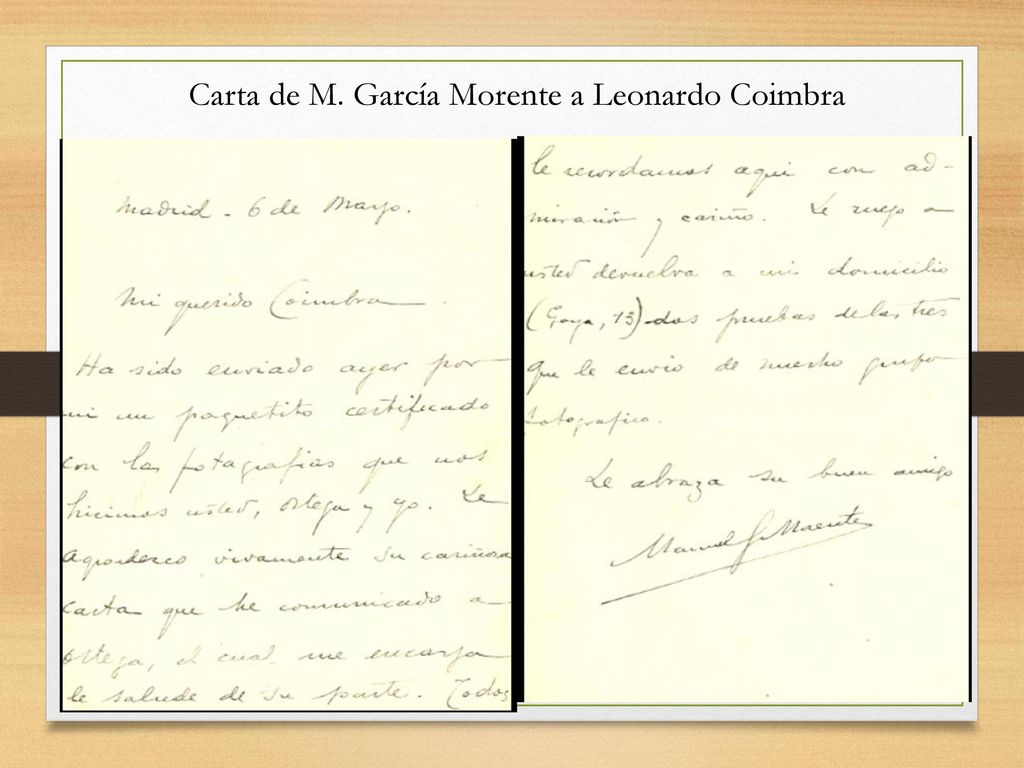 Carta de M. García Morente a Leonardo Coimbra
Madrid - 6 de Mayo.
Mi querido Coimbra
Ha sido enviado ayer por
mi un paquetito certificado
con las fotografias que nos
hicimos usted, Ortega y yo. Le
agradezco vivamente su cariñosa
carta que he comunicado a
Ortega, el cual me encarga
le salude de su parte. Todos
le recordamos aqui con ad-
miración y cariño. Le ruego a
usted devuelva a mi domicilio
(Goya, 13) dos pruebas de las tres
que le envio de nuestro grupo
fotografico.
Le abraza su buen amigo
Manuel G Morente